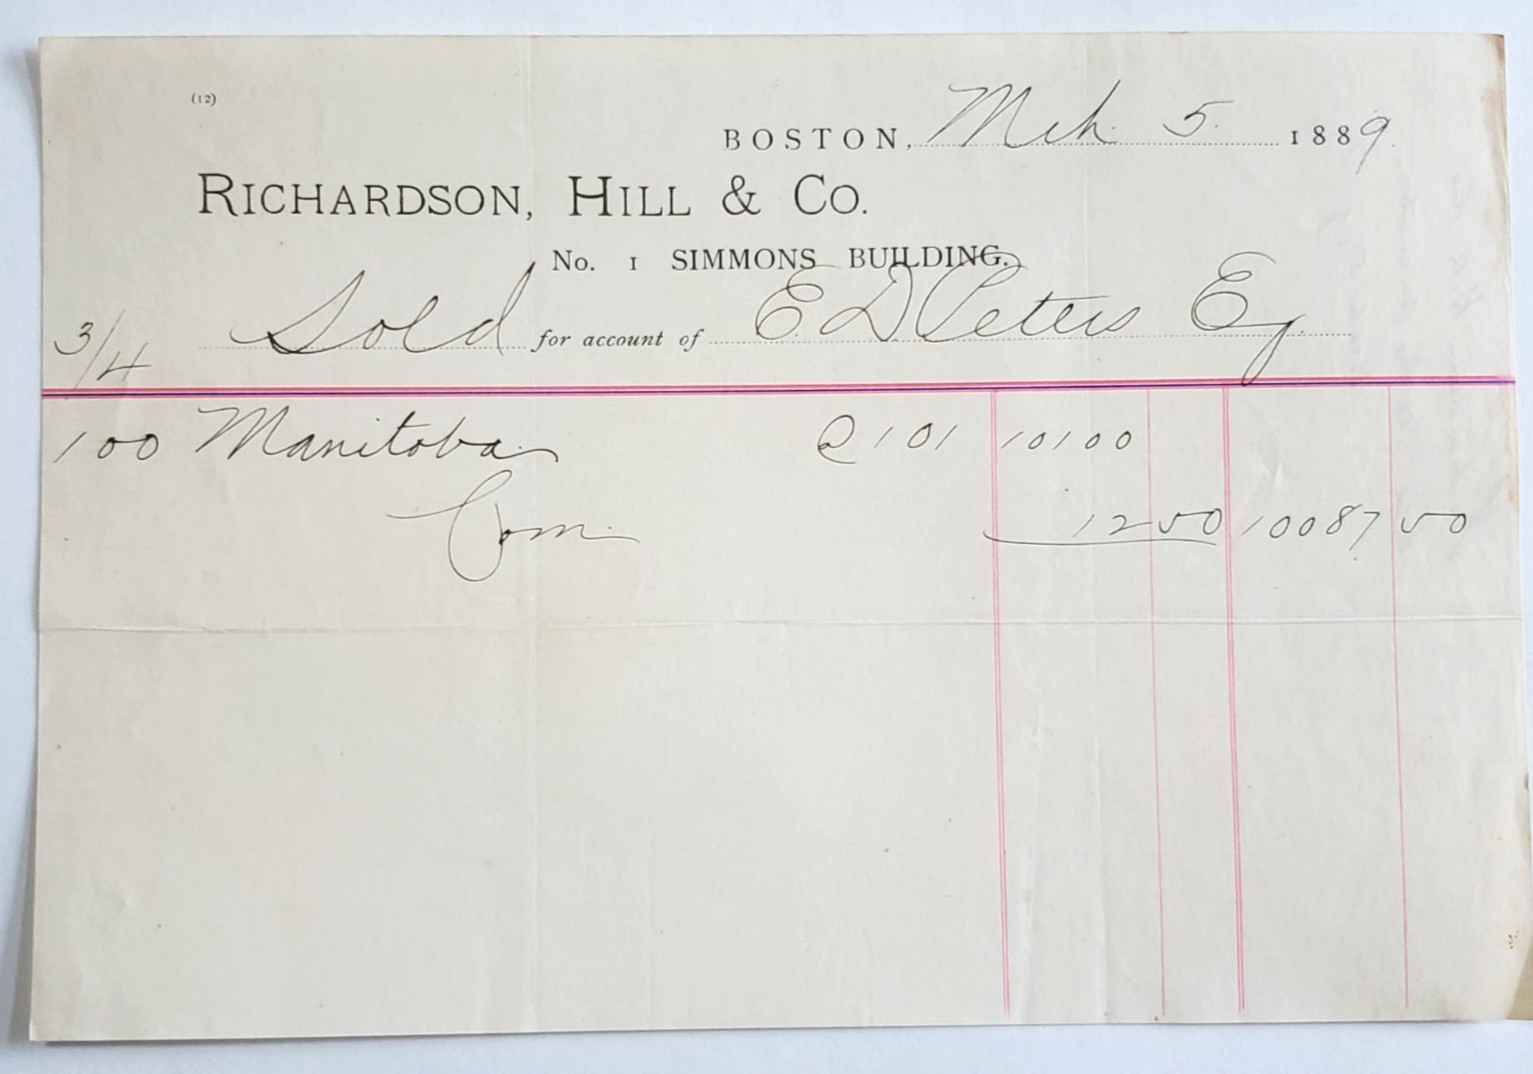 (12)
BOSTON, Mch. 5. 1889.
RICHARDSON, HILL & CO.
No. 1 SIMMONS BUILDING.
3/4 Sold for account of E. D. Peters Esq.
100 Manitoba @ 101 10100
Com. 12 50 10087 50